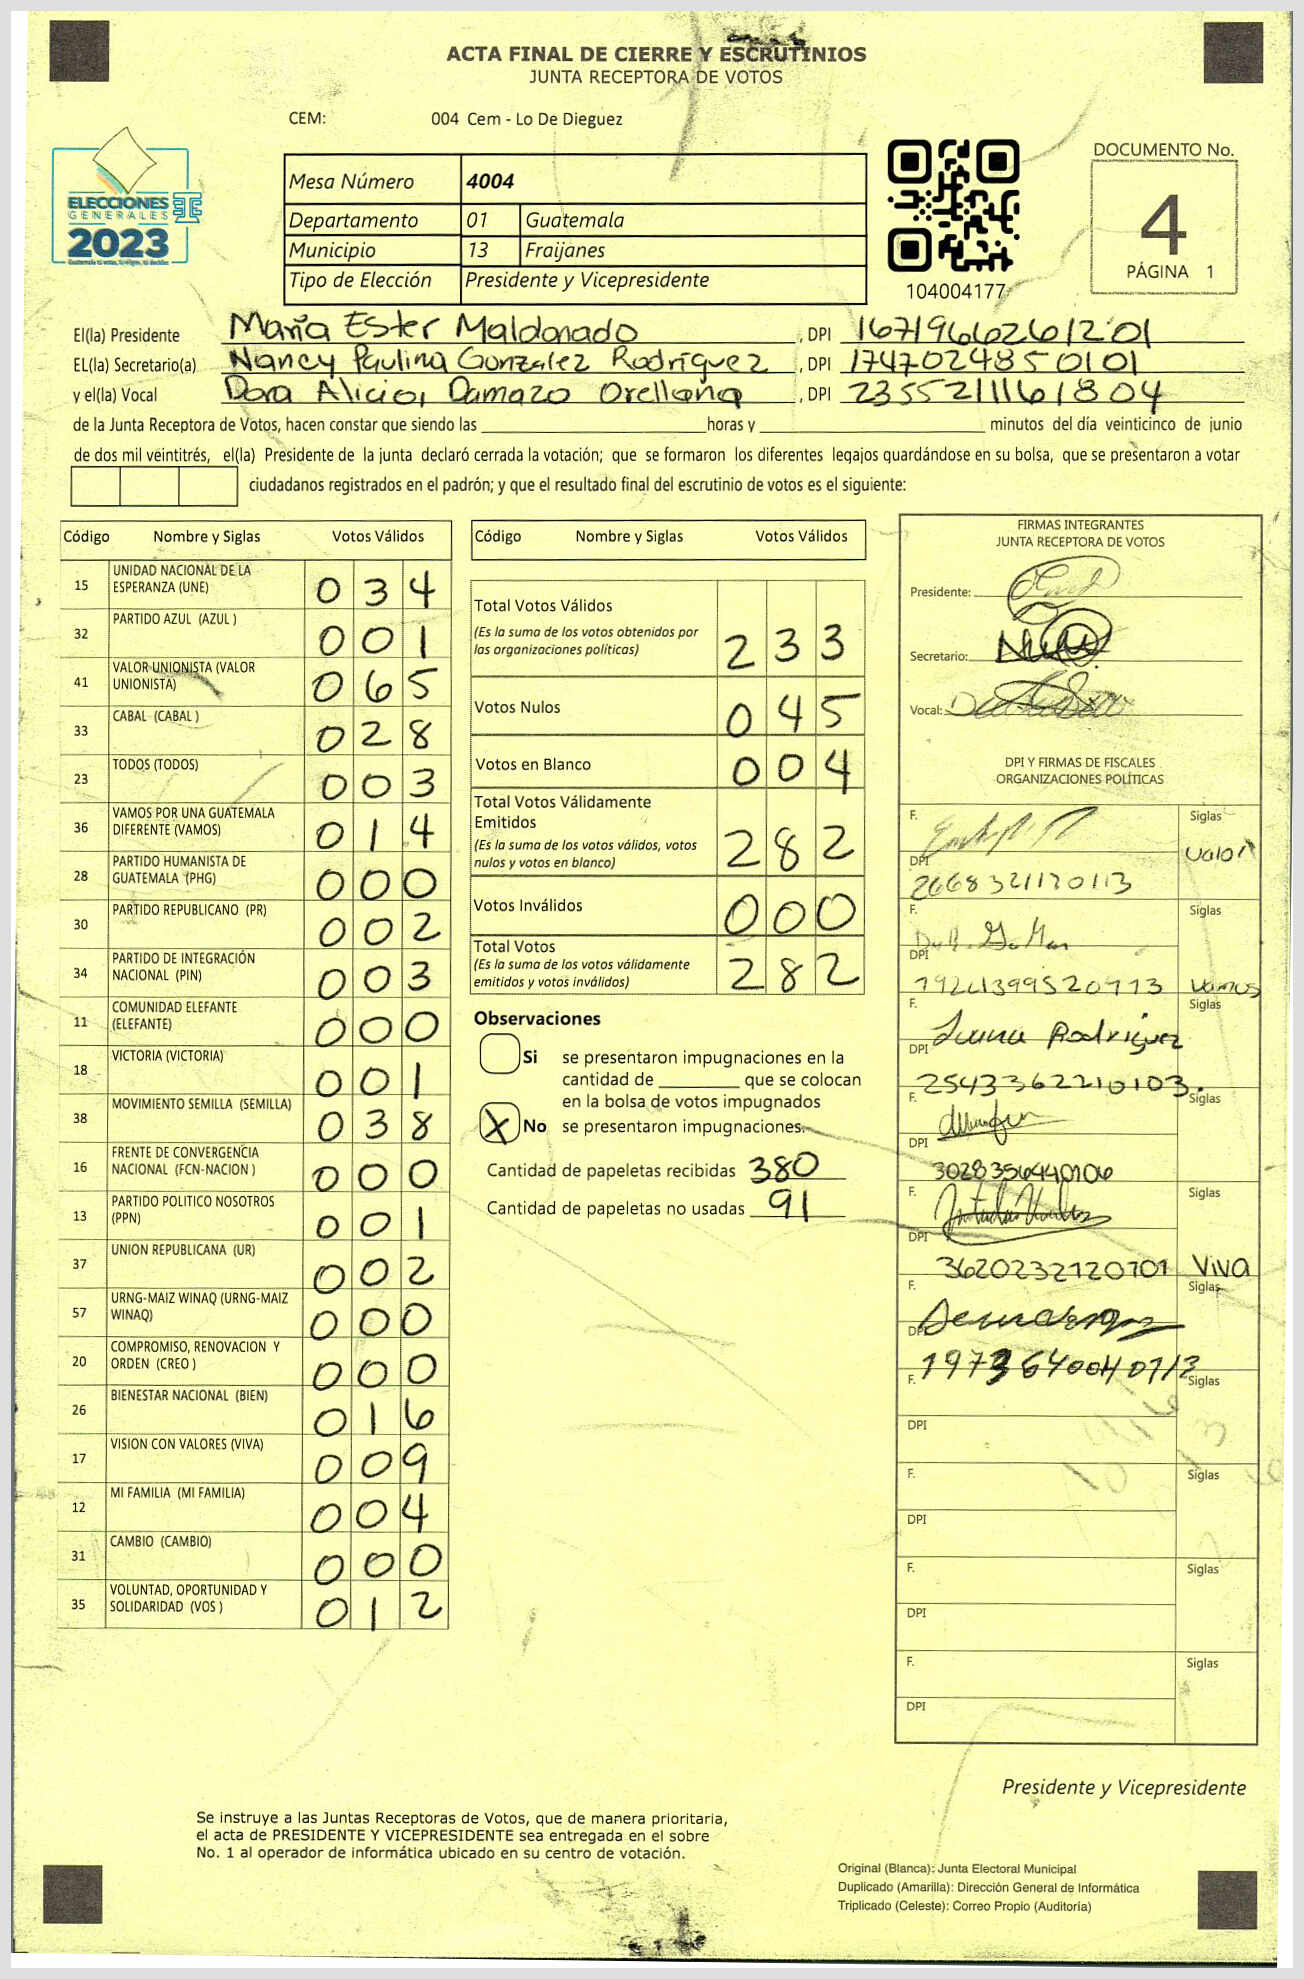 ACTA FINAL DE CIERRE Y ESCRUTINIOS
JUNTA RECEPTORA DE VOTOS
CEM: 004 Cem - Lo De Dieguez
ELECCIONES
GENERALES
2023
Mesa Número 4004
Departamento 01 Guatemala
Municipio 13 Fraijanes
Tipo de Elección Presidente y Vicepresidente
104004177
DOCUMENTO No.
4
PÁGINA 1
El(la) Presidente María Ester Maldonado, DPI 1671966261201
EL(la) Secretario(a) Nancy Paulina Gonzalez Rodríguez, DPI 1747024850101
y el(la) Vocal Dora Alicia Damazo Orellana, DPI 2355211161804
de la Junta Receptora de Votos, hacen constar que siendo las horas y minutos del día veinticinco de junio
de dos mil veintitrés, el(la) Presidente de la junta declaró cerrada la votación; que se formaron los diferentes legajos guardándose en su bolsa, que se presentaron a votar
ciudadanos registrados en el padrón; y que el resultado final del escrutinio de votos es el siguiente:
Código Nombre y Siglas Votos Válidos
15 UNIDAD NACIONAL DE LA ESPERANZA (UNE) 034
32 PARTIDO AZUL (AZUL ) 001
41 VALOR UNIONISTA (VALOR UNIONISTA) 065
33 CABAL (CABAL ) 028
23 TODOS (TODOS) 003
36 VAMOS POR UNA GUATEMALA DIFERENTE (VAMOS) 014
28 PARTIDO HUMANISTA DE GUATEMALA (PHG) 000
30 PARTIDO REPUBLICANO (PR) 002
34 PARTIDO DE INTEGRACIÓN NACIONAL (PIN) 003
11 COMUNIDAD ELEFANTE (ELEFANTE) 000
18 VICTORIA (VICTORIA) 001
38 MOVIMIENTO SEMILLA (SEMILLA) 038
16 FRENTE DE CONVERGENCIA NACIONAL (FCN-NACION ) 000
13 PARTIDO POLITICO NOSOTROS (PPN) 001
37 UNION REPUBLICANA (UR) 002
57 URNG-MAIZ WINAQ (URNG-MAIZ WINAQ) 000
20 COMPROMISO, RENOVACION Y ORDEN (CREO ) 000
26 BIENESTAR NACIONAL (BIEN) 016
17 VISION CON VALORES (VIVA) 009
12 MI FAMILIA (MI FAMILIA) 004
31 CAMBIO (CAMBIO) 000
35 VOLUNTAD, OPORTUNIDAD Y SOLIDARIDAD (VOS ) 012
Código Nombre y Siglas Votos Válidos
Total Votos Válidos
(Es la suma de los votos obtenidos por
las organizaciones políticas) 233
Votos Nulos 045
Votos en Blanco 004
Total Votos Válidamente
Emitidos
(Es la suma de los votos válidos, votos
nulos y votos en blanco) 282
Votos Inválidos 000
Total Votos
(Es la suma de los votos válidamente
emitidos y votos inválidos) 282
Observaciones
Si se presentaron impugnaciones en la
cantidad de que se colocan
en la bolsa de votos impugnados
X No se presentaron impugnaciones.
Cantidad de papeletas recibidas 380
Cantidad de papeletas no usadas 91
FIRMAS INTEGRANTES
JUNTA RECEPTORA DE VOTOS
Presidente:
Secretario:
Vocal:
DPI Y FIRMAS DE FISCALES
ORGANIZACIONES POLÍTICAS
F. Siglas
DPI Valor
2668321120113
F. Siglas
DPI
Vamos
F. Siglas
DPI Rodriguez
2543362210103.
F. Siglas
DPI
3028356440106
F. Siglas
DPI
3620232120101 Viva
F. Siglas
DPI
F. Siglas
DPI
F. Siglas
DPI
F. Siglas
DPI
F. Siglas
DPI
Presidente y Vicepresidente
Se instruye a las Juntas Receptoras de Votos, que de manera prioritaria,
el acta de PRESIDENTE Y VICEPRESIDENTE sea entregada en el sobre
No. 1 al operador de informática ubicado en su centro de votación.
Original (Blanca): Junta Electoral Municipal
Duplicado (Amarilla): Dirección General de Informática
Triplicado (Celeste): Correo Propio (Auditoría)